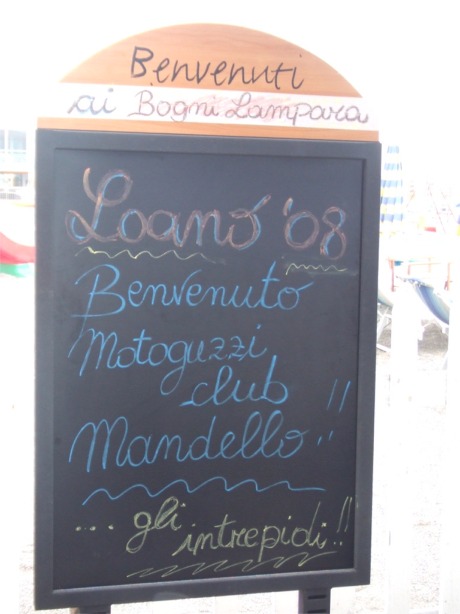 Benvenuti
ai Bagni Lampara
Loano '08
Benvenuto
Motoguzzi
club
Mandello !!
... gli
intrepidi !!